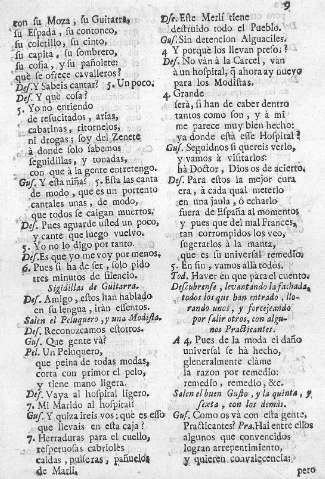 9
con su Moza, su Guitarra,
su Espada, su contoneo,
su coletillo, su cinto,
su capita, su sombrero,
su cofia, y su pañolete:
què se ofrece cavalleros?
Def. Y Sabeis cantar? 5. Un poco.
Def. Y què cosa?
5. Yo no entiendo
de resucitados, arias,
cabatinas, ritornelos,
ni drogas; soy del Zenete
à donde solo sabemos
seguidillas, y tonadas,
con que à la gente entretengo.
Gus. Y esta niña? 5. Esta las canta
de modo, que es un portento
cantales unas, de modo,
que todos se caigan muertos.
Def. Pues aguarde usted un poco,
y cante que luego vuelvo.
5. Yo no lo digo por tanto.
Def. Es que yo me voy por menos,
6. Pues si ha de ser, solo pido
tres minutos de silencio.
Sigidillas de Guitarra.
Def. Amigo, estos han hablado
en su lengua, iràn essotros.
Salen el Peluquero, y una Modista.
Def. Reconozcamos estotros.
Gus. Què gente và?
Pel. Un Peluquero,
que peina de todas modas,
corta con primor el pelo,
y tiene mano ligera.
Def. Vaya al hospital ligero.
7. Mi Marido al hospital?
Gus. Y quiza ireis vos; què es esso
que llevais en esta caja?
7. Herraduras para el cuello,
respetuosas cabrioles
caidas, pulseras, pañuelos
de Marlì.
Def. Este Merlì tiene
destruido todo el Pueblo.
Gus. Sin detencion Alguaciles.
4 Y porquè los llevan preso?
Def. No vàn à la Carcel, van
à un hospital, q̃ ahora ay nuevo
para los Modistas.
4. Grande
serà, si han de caber dentro
tantos como son, y à mi
me parece muy bien hecho:
ya donde està esse Hospital?
Gus. Seguidnos si quereis verlo,
y vamos à visitarlos:
hà Doctor, Dios os de acierto.
Def. Para estos la mejor cura
era, à cada qual meterlo
en una jaula, ò echarlo
fuera de España al momento
y pues que del mal Frances,
an corrompidos los veo,
sugerarlos à la manta,
que es su universal remedio.
5. En fin, vamos allà todos.
Tod. Haver en que para el cuento.
Descubrense, levantando la fachada,
todos los que han entrado, llorando
unos, y forcejando
por salir otros, con algunos
Practicantes.
A 4. Pues de la moda el daño
universal se hà hecho,
generalmente clame
la razon por remedio:
remedio, remedio, &c.
Salen el buen Gusto, y la quinta, y
sexta, con los demàs.
Gus. Como os và con esta gente,
Practicantes? Pra. Hai entre ellos
algunos que convencidos
logran arrepentimiento,
y quieren convalecencia;
pero